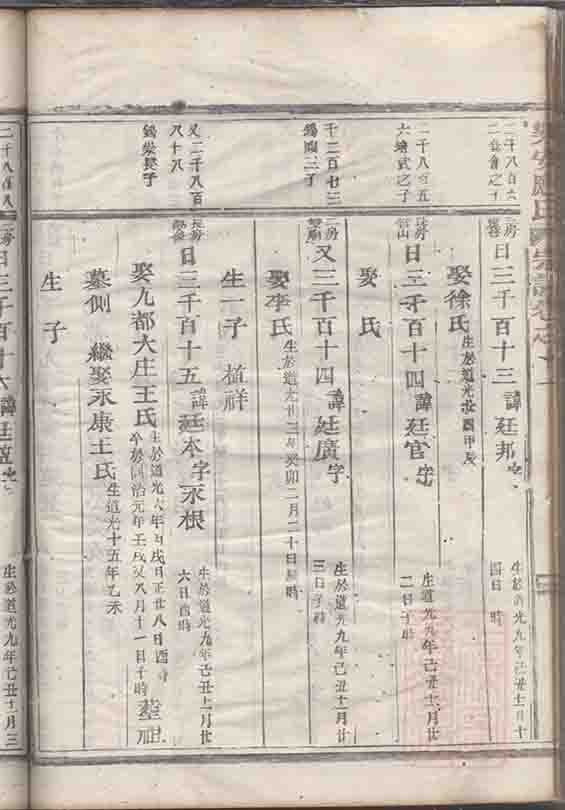 二千八百六
二
三房
日三千百十三諱廷邦字
生於道光九年己丑十一月十
四日 時
娶徐氏
二千八百五
六
之子
長房
日三千百十四諱廷官字
生道光九年己丑十一月廿
二日子時
娶 氏
千二百七三
三子
二房
又三千百十四諱廷廣字
生於道光九年己丑十一月廿
三日子時
娶李氏
生於道光廿三年癸卯二月二十日辰時
生一子 植祥
又二千八百
八十八
長子
長房
日三千百十五諱廷本字永根
生於道光九年己丑十一月廿
六日酉時
娶九都大庄王氏
生於道光八年戊戌日正廿八日酉時
卒於同治元年壬戌又八月十一日子時
葬祖
墓側 繼娶永康王氏
生道光十五年乙未
生 子
二千八百八
二房
日三千百十六諱廷
生於道光九年己丑十一月三